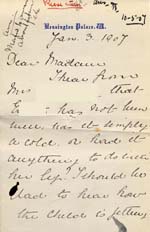 Kensington Palace. W.
Jan. 3. 1907
Dear Madam
I hear from
Mrs that
E has not been
well, was it simply
a cold, or had it
anything to do with
her hip? I should be
glad to hear how
the child is getting